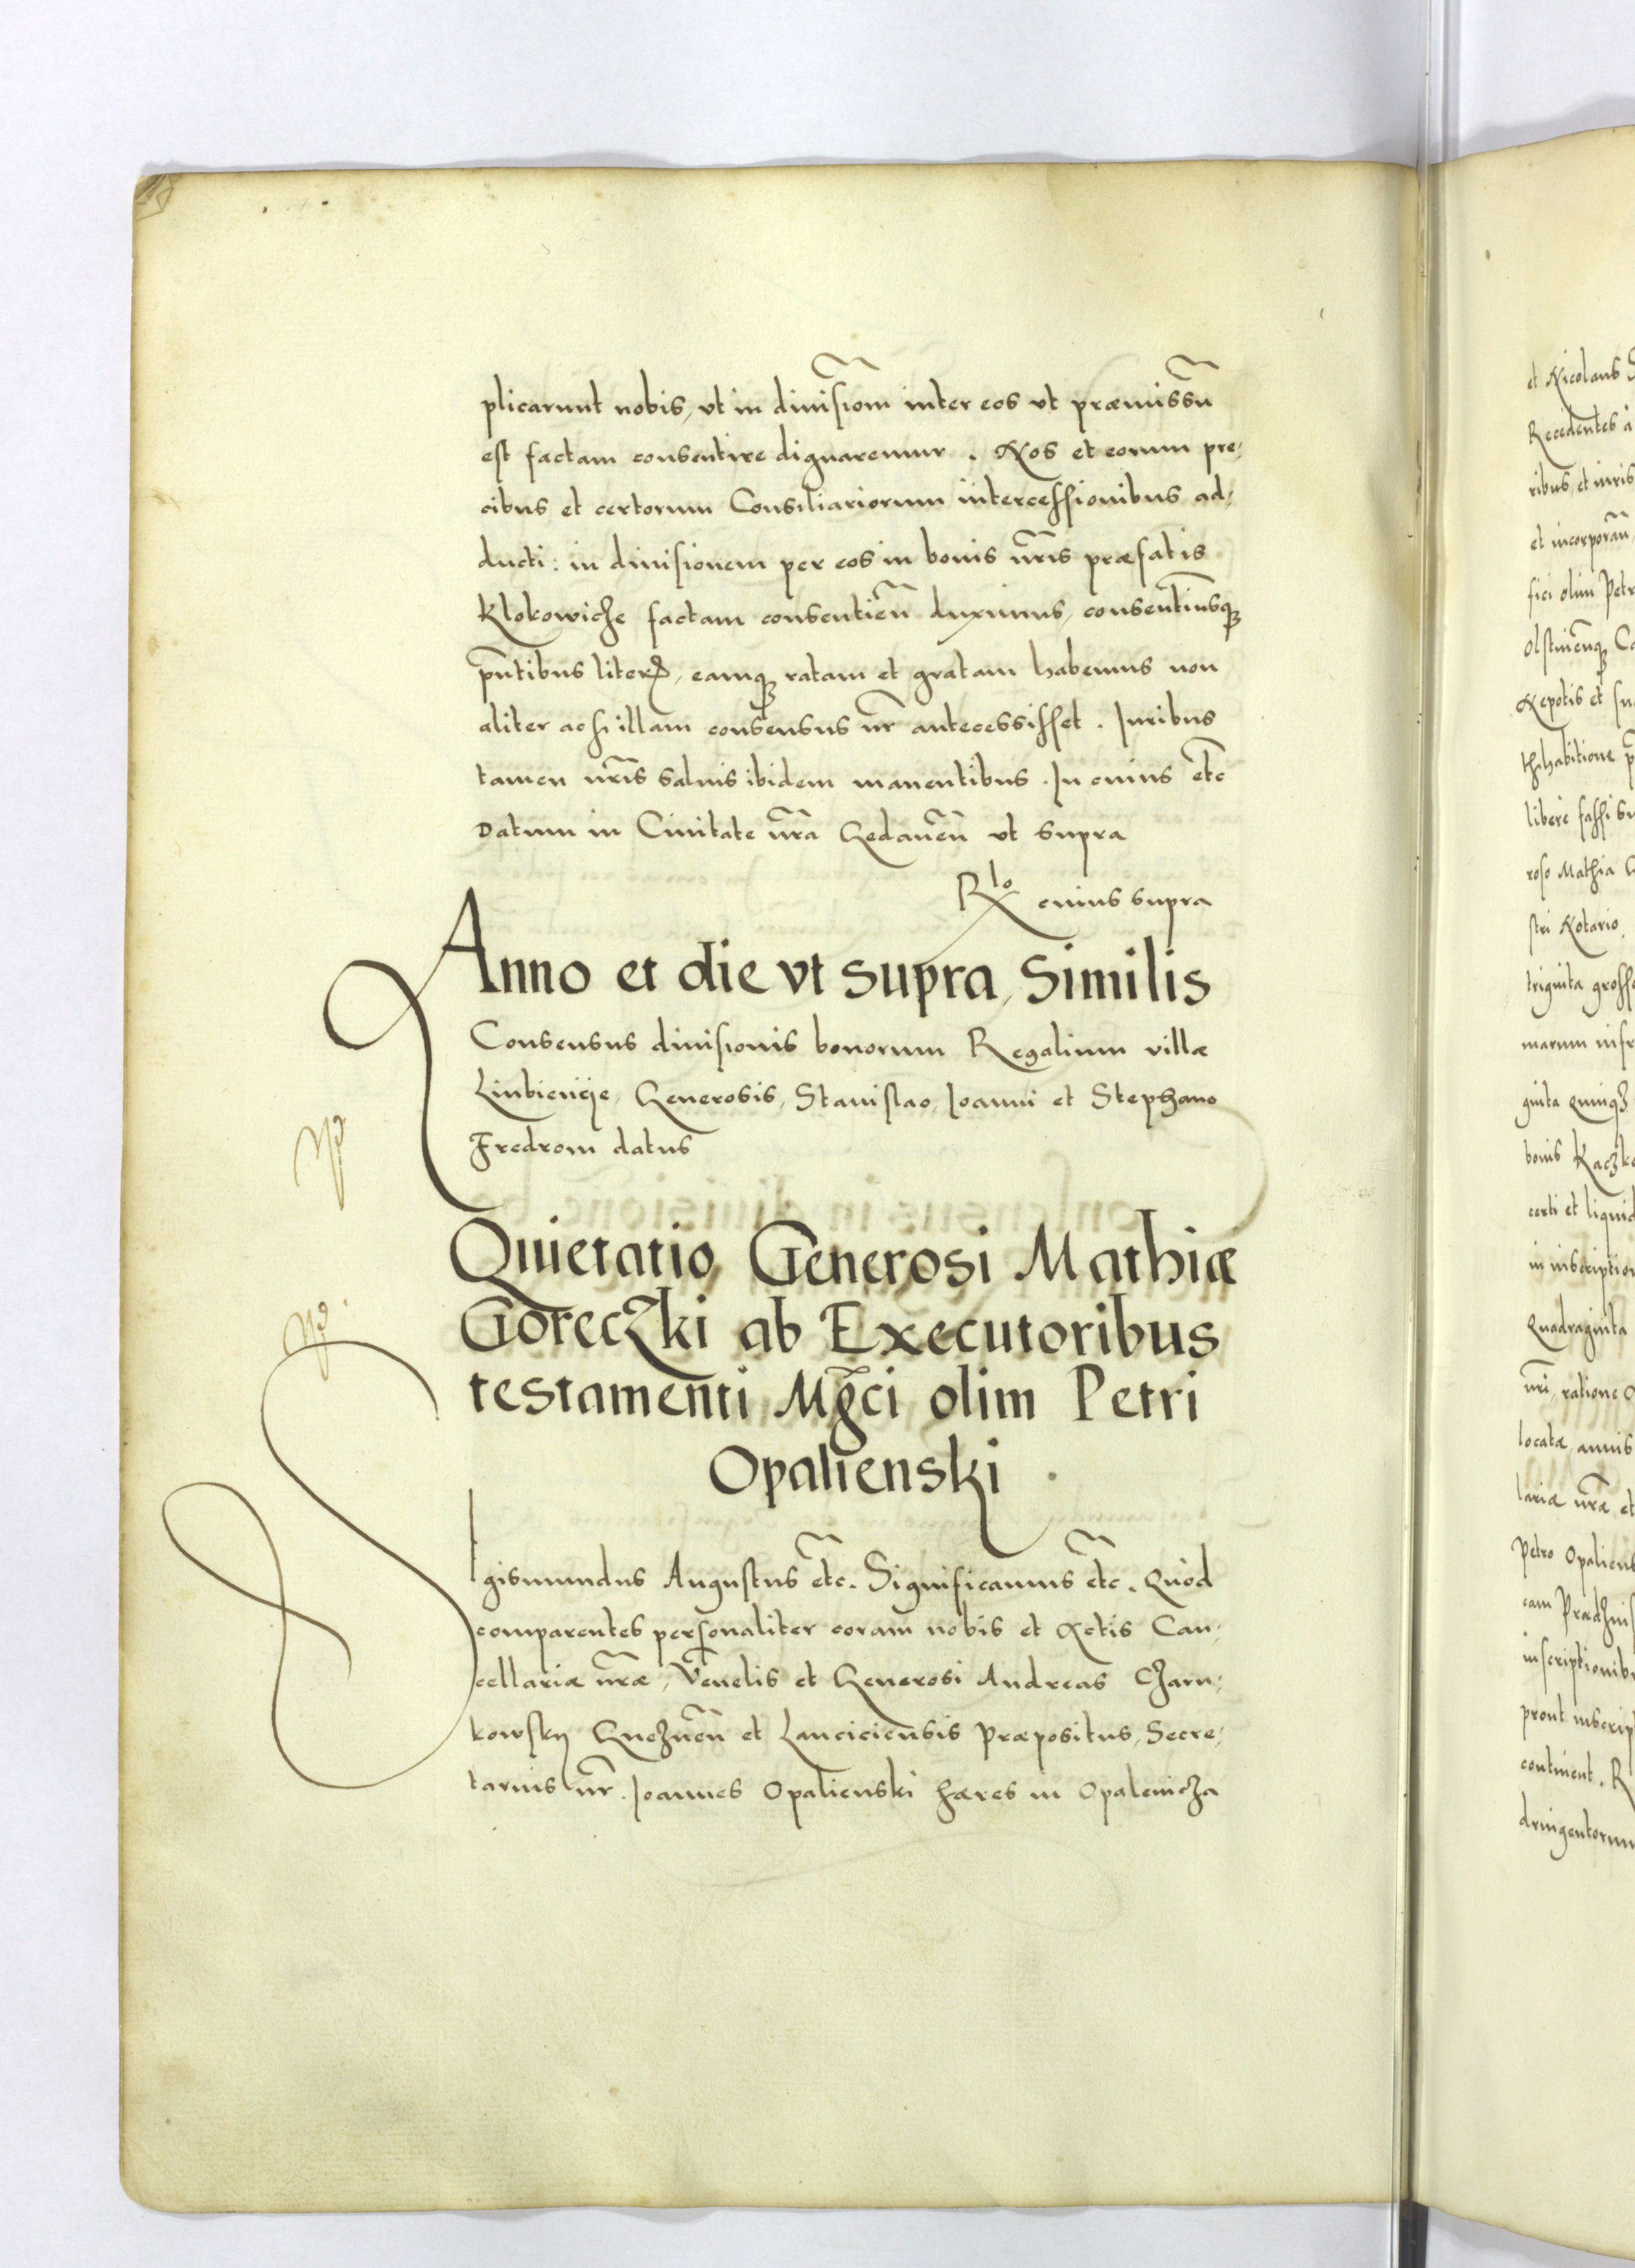 plicarunt nobis, vt in diuisiom̃ inter eos vt præmissũ
est factam consentire dignaremur. Nos et eorum pre,
cibus et certorum Consiliariorum intercessionibus ad,
ducti: in diuisionem per eos in bonis nr̃is præfatis
Klokowicze factam consentien̄ duximus, consentimusq3
pñtibus literꝭ, eamq3 ratam et gratam habemus non
aliter ac si illam consensus nr̃ antecessisset. Iuribus
tamen nr̃is saluis ibidem manentibus. In cuius etc̃
Datum in Ciuitate nr̃a Gedanen̄ vt supra
Rlo cuius supra
Anno et die vt supra, Similis
Consensus diuisionis bonorum Regalium villæ
Generosis, Stanislao, Ioanni et Stephano
Fredrom datus
Quietatio Generosi Mathiæ
Goreczki ab Executoribus
testamenti Mg̃ci olim Petri
Opalienski.
Sigismundus Augustus etc̃. Significamus etc̃. Quod
comparentes personaliter coram nobis et Actis Can,
cellariæ nr̃æ, Venelis et Generosi Andreas Czarn,
kowsky Gneznen̄ et Lanciciensis Præpositus, Secre,
tarius nr̃. Ioannes Opalienski hæres in Opalenicza
et Nicolaus
Recedentes a
ribus, et iuris
et incorporañ
fici olim Petr
Nepotis et su
libere fassi su
roso Mathia G
stri Notario
triginta gross
marum infr
ginta quinq3
bonis Kaczk
certi et liquid
in inscription
Quadraginta
nr̃i, ratione o
locatæ, annis
lariæ nr̃æ et
Petro Opaliens
inscriptionib
prout inscrip
continent. R
dringentorum